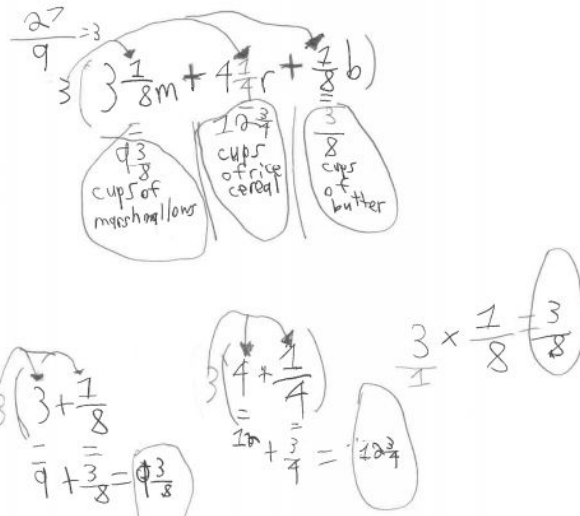 27/9 = 3
3(3 1/8 m + 4 1/4 r + 1/8 b)
= 9 3/8 cups of marshmallows
= 12 3/4 cups of rice cereal
= 3/8 cups of butter
3/1 × 1/8 = 3/8
3(3 + 1/8)
= =
9 + 3/8 = 9 3/8
3(4 + 1/4)
= =
12 + 3/4 = 12 3/4